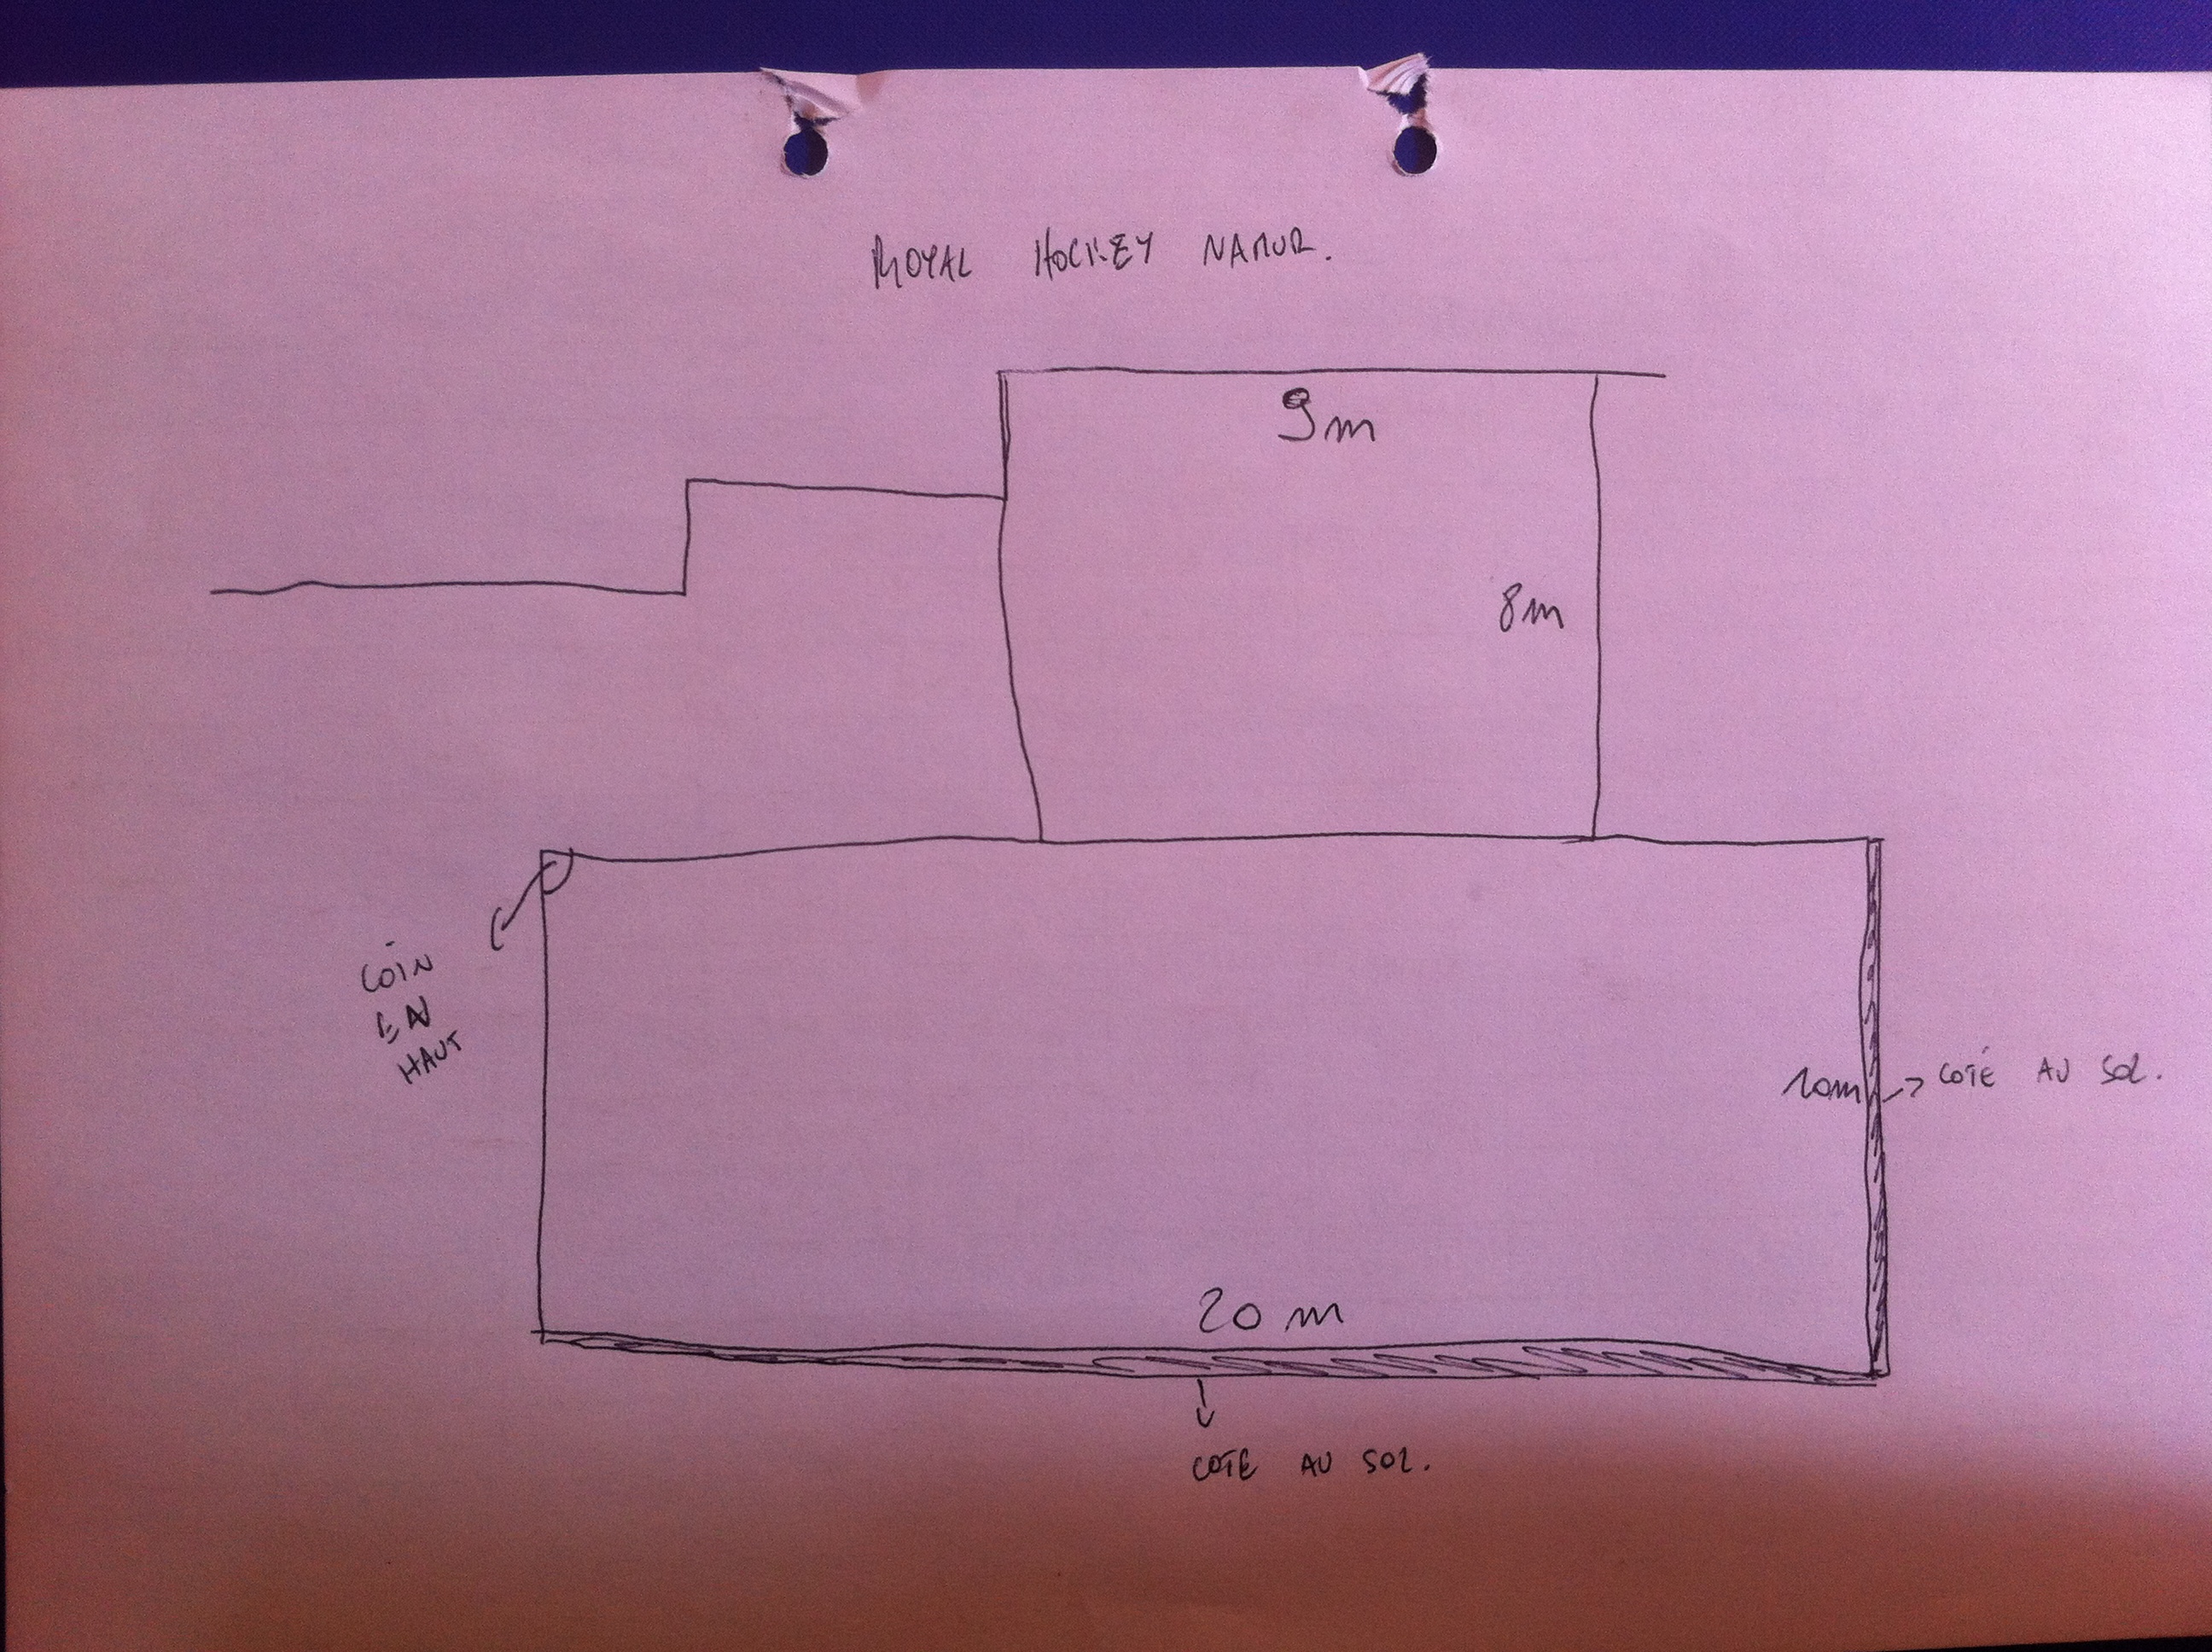 ROYAL HOCKEY NAMUR.
9m
8m
COIN
EN
HAUT
20 m
10m
COTÉ AU SOL.
COTE AU SOL.